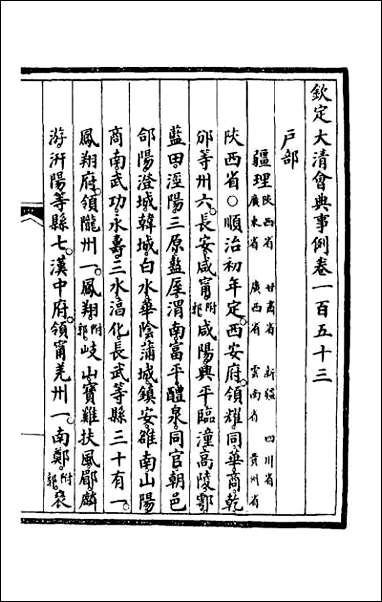 欽定大清會典事例卷一百五十三
戶部
疆理陝西省 甘肅省 新疆 四川省 廣東省 廣西省 雲南省 貴州省
陝西省○順治初年定西安府領耀同華商乾
邠等州六長安咸甯附郭咸陽興平臨潼高陵鄠
藍田涇陽三原盩厔渭南富平醴泉同官朝邑
郃陽澄城韓城白水華陰蒲城鎮安雒南山陽
商南武功永壽三水淳化長武等縣三十有一
鳳翔府領隴州一鳳翔附郭岐山寶雞扶風郿麟
游汧陽等縣七漢中府領甯羌州一南鄭附郭襃